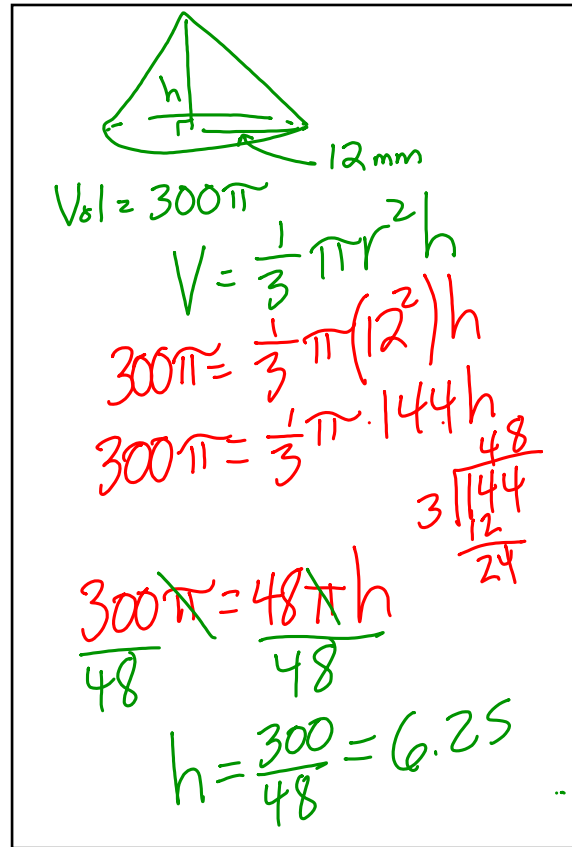 h
12 mm
Vol = 300π
V = 1/3 πr²h
300π = 1/3 π(12²)h
300π = 1/3 π · 144 · h
48
3 144
12
24
300π = 48πh
48 48
h = 300/48 = 6.25